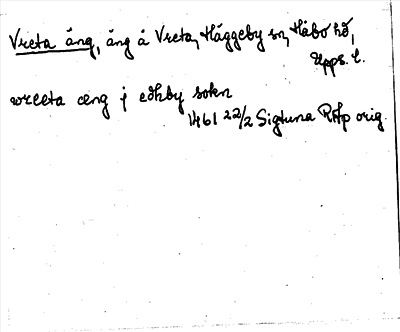 Vreta äng, äng å Vreta, Häggeby sn, Håbo hd,
Upps. l.
wreeta æng j edhby sokn
1461 22/2 Sigtuna RAp orig.